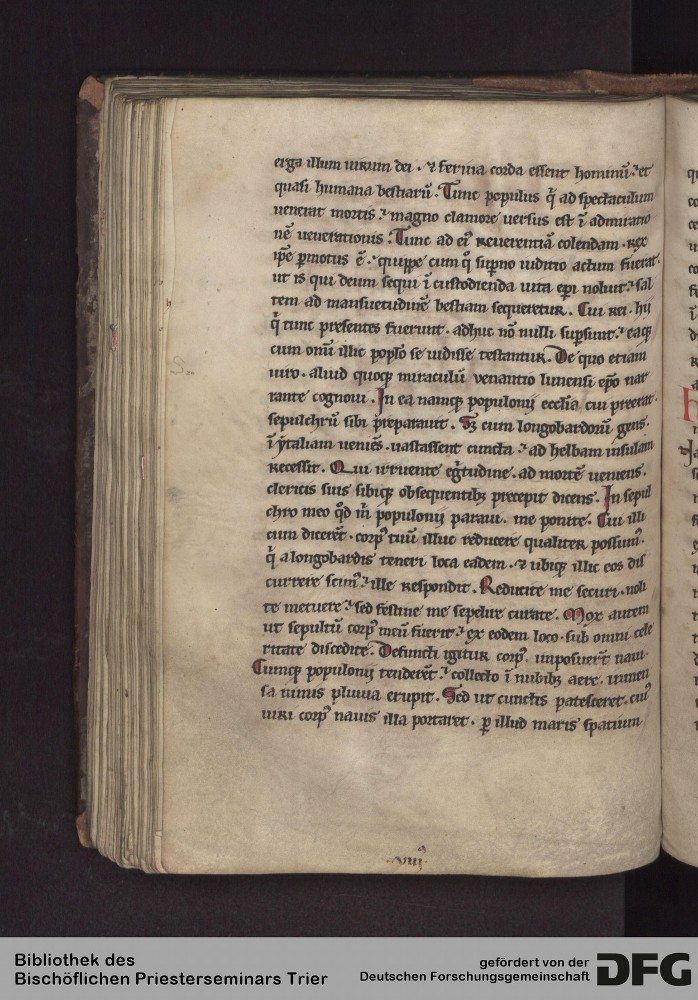 erga illum uirum dei · ⁊ ferina corda essent hominū · et
quasi humana bestiarū · Tunc populus q̄ ad spectaculum
uenerat mortis · ⁊ magno clamore uersus est ī admiratio
nē uenerationis · Tunc ad eī reuerentiā colendam · rex
ip̄e ꝑmotus ē · quippe cum q̄ suꝑno iuditio actum fuerat ·
ut is qui deum sequi ī custodienda uita ep̄i noluit · sal
tem ad mansuetudinē bestiam sequeretur · Cui rei · hij
q̄ tunc presentes fuerunt · adhuc nō nulli suꝑsunt · eaqꝫ
cum om̄i illic popl̄o se uidisse testantur · De quo etiam
uiro · aliud quoqꝫ miraculū uenantio lunensi ep̄o nar
rante cognoui · In ea namqꝫ populonij eccl̄ia cui preerat ·
sepulchrū sibi p̄parauit · Sꝫ cum longobardorū gens ·
ī ytaliam ueniēs · uastassent cuncta · ⁊ ad helbam insulam
recessit · Qui irruente eg̓tudine · ad mortē ueniens ·
clericis suis sibiqꝫ obsequentibꝫ precepit dicens · In sepul
chro meo qd̄ m̄ populonij paraui · me ponite · Cui illi
cum dicerēt · corpꝰ tuū illuc reducere qualiter possumꝰ ·
q̄ a longobardis teneri loca eadem · ⁊ ubiqꝫ illic eos dis
currere scimꝰ · ille respondit · Reducite me securi · noli
te metuere · sed festine me sepelire curate · Mox autem
ut sepultū corpꝰ meū fuerit · ⁊ ex eodem loco · sub omni cele
ritate discedite · Defuncti igitur corpꝰ imposuerūt naui ·
Cumqꝫ populonij tenderēt · ⁊ collecto ī nubibꝫ aere · inmen
sa nimis pluuia erupit · Sed ut cunctis patesceret · cuiꝰ
uiri corpꝰ nauis illa portaret · ꝑ illud maris spatium
Bibliothek des
Bischöflichen Priesterseminars Trier
gefördert von der
Deutschen Forschungsgemeinschaft
DFG